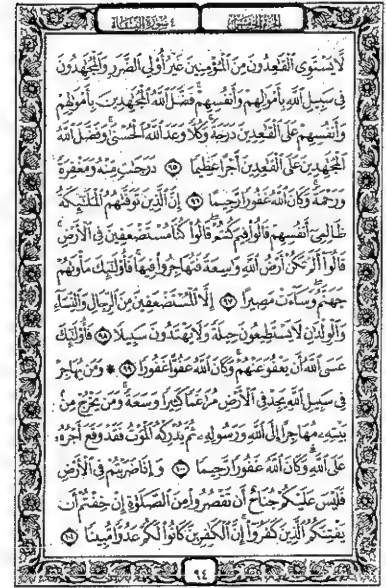 الجزء الخامس
٤ سورة النساء
لَّا يَسْتَوِى الْقَٰعِدُونَ مِنَ الْمُؤْمِنِينَ غَيْرُ أُوْلِى الضَّرَرِ وَالْمُجَٰهِدُونَ
فِى سَبِيلِ اللَّهِ بِأَمْوَٰلِهِمْ وَأَنفُسِهِمْ ۚ فَضَّلَ اللَّهُ الْمُجَٰهِدِينَ بِأَمْوَٰلِهِمْ
وَأَنفُسِهِمْ عَلَى الْقَٰعِدِينَ دَرَجَةً ۚ وَكُلًّا وَعَدَ اللَّهُ الْحُسْنَىٰ ۚ وَفَضَّلَ اللَّهُ
الْمُجَٰهِدِينَ عَلَى الْقَٰعِدِينَ أَجْرًا عَظِيمًا ٩٥ دَرَجَٰتٍ مِّنْهُ وَمَغْفِرَةً
وَرَحْمَةً ۚ وَكَانَ اللَّهُ غَفُورًا رَّحِيمًا ٩٦ إِنَّ الَّذِينَ تَوَفَّىٰهُمُ الْمَلَٰٓئِكَةُ
ظَالِمِىٓ أَنفُسِهِمْ قَالُوا۟ فِيمَ كُنتُمْ ۖ قَالُوا۟ كُنَّا مُسْتَضْعَفِينَ فِى الْأَرْضِ ۚ
قَالُوٓا۟ أَلَمْ تَكُنْ أَرْضُ اللَّهِ وَٰسِعَةً فَتُهَاجِرُوا۟ فِيهَا ۚ فَأُو۟لَٰٓئِكَ مَأْوَىٰهُمْ
جَهَنَّمُ ۖ وَسَآءَتْ مَصِيرًا ٩٧ إِلَّا الْمُسْتَضْعَفِينَ مِنَ الرِّجَالِ وَالنِّسَآءِ
وَالْوِلْدَٰنِ لَا يَسْتَطِيعُونَ حِيلَةً وَلَا يَهْتَدُونَ سَبِيلًا ٩٨ فَأُو۟لَٰٓئِكَ
عَسَى اللَّهُ أَن يَعْفُوَ عَنْهُمْ ۚ وَكَانَ اللَّهُ عَفُوًّا غَفُورًا ٩٩ ۞ وَمَن يُهَاجِرْ
فِى سَبِيلِ اللَّهِ يَجِدْ فِى الْأَرْضِ مُرَٰغَمًا كَثِيرًا وَسَعَةً ۚ وَمَن يَخْرُجْ مِنۢ
بَيْتِهِۦ مُهَاجِرًا إِلَى اللَّهِ وَرَسُولِهِۦ ثُمَّ يُدْرِكْهُ الْمَوْتُ فَقَدْ وَقَعَ أَجْرُهُۥ
عَلَى اللَّهِ ۗ وَكَانَ اللَّهُ غَفُورًا رَّحِيمًا ١٠٠ وَإِذَا ضَرَبْتُمْ فِى الْأَرْضِ
فَلَيْسَ عَلَيْكُمْ جُنَاحٌ أَن تَقْصُرُوا۟ مِنَ الصَّلَوٰةِ إِنْ خِفْتُمْ أَن
يَفْتِنَكُمُ الَّذِينَ كَفَرُوٓا۟ ۚ إِنَّ الْكَٰفِرِينَ كَانُوا۟ لَكُمْ عَدُوًّا مُّبِينًا ١٠١
٩٤